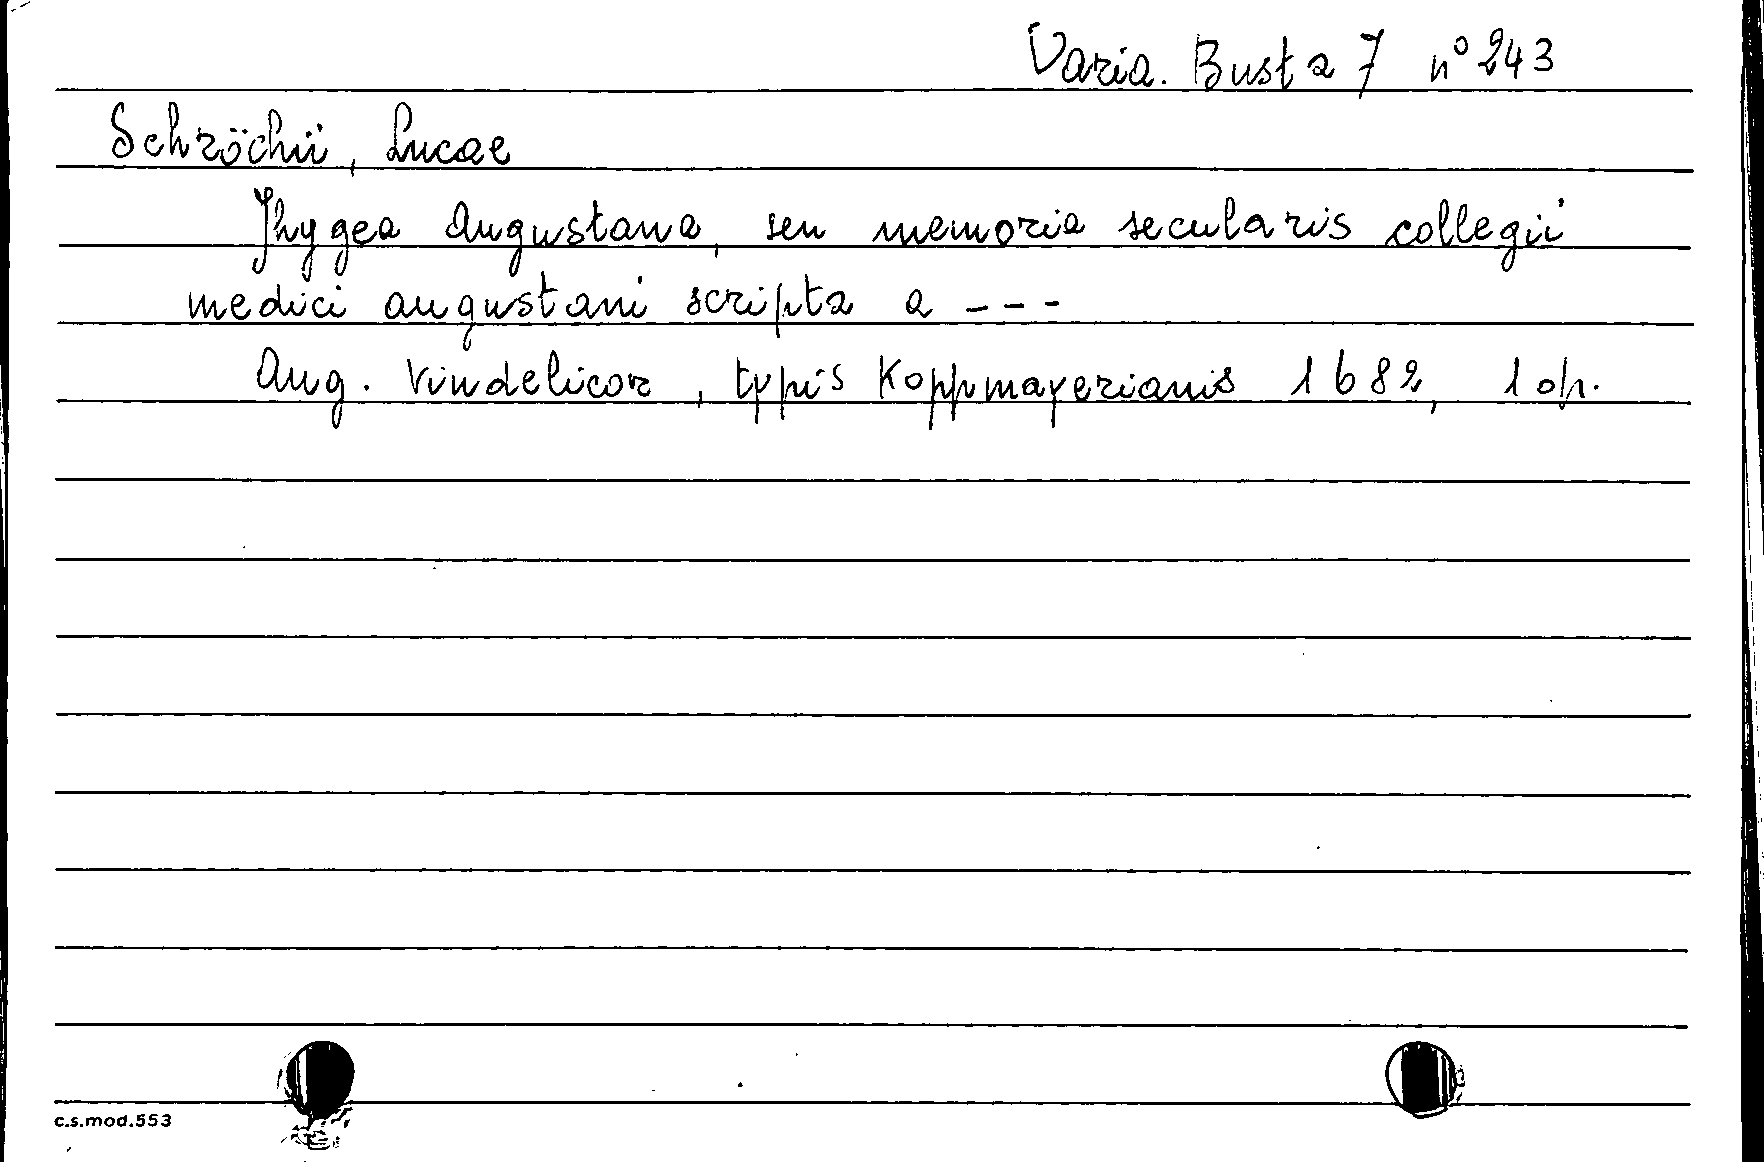 Varia. Busta 7 n° 243
Schröchii, Lucae
Jhygea Augustana, seu memoria secularis collegii
medici augustani scripta a ---
Aug. Vindelicor, typis Koppmayerianis 1682, 1 op.
c.s.mod.553